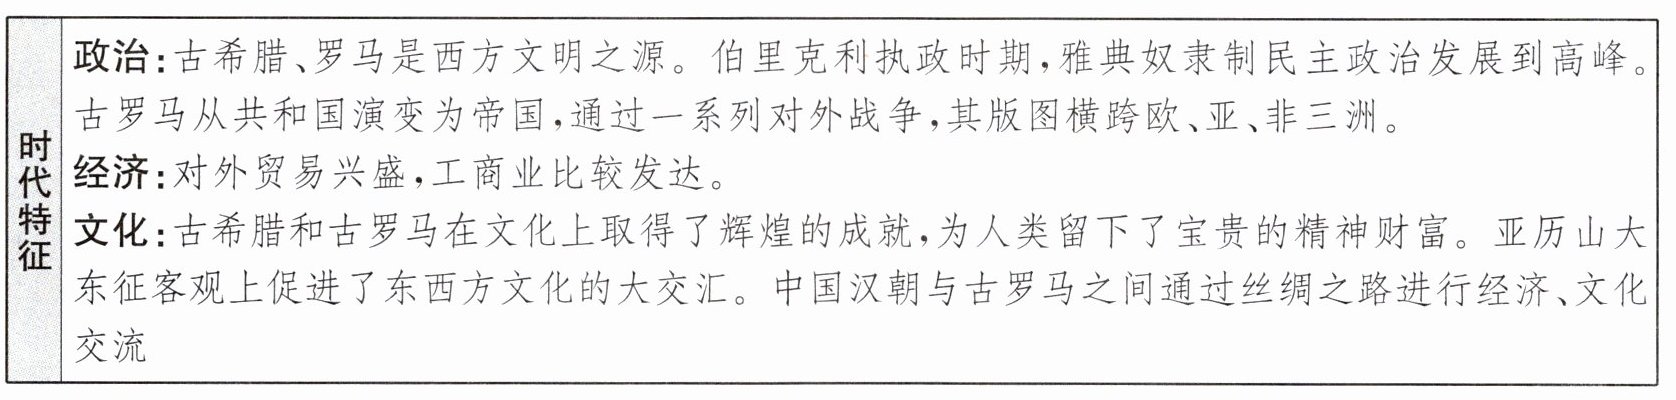 时代特征
政治:古希腊、罗马是西方文明之源。伯里克利执政时期,雅典奴隶制民主政治发展到高峰。
古罗马从共和国演变为帝国,通过一系列对外战争,其版图横跨欧、亚、非三洲。
经济:对外贸易兴盛,工商业比较发达。
文化:古希腊和古罗马在文化上取得了辉煌的成就,为人类留下了宝贵的精神财富。亚历山大
东征客观上促进了东西方文化的大交汇。中国汉朝与古罗马之间通过丝绸之路进行经济、文化
交流